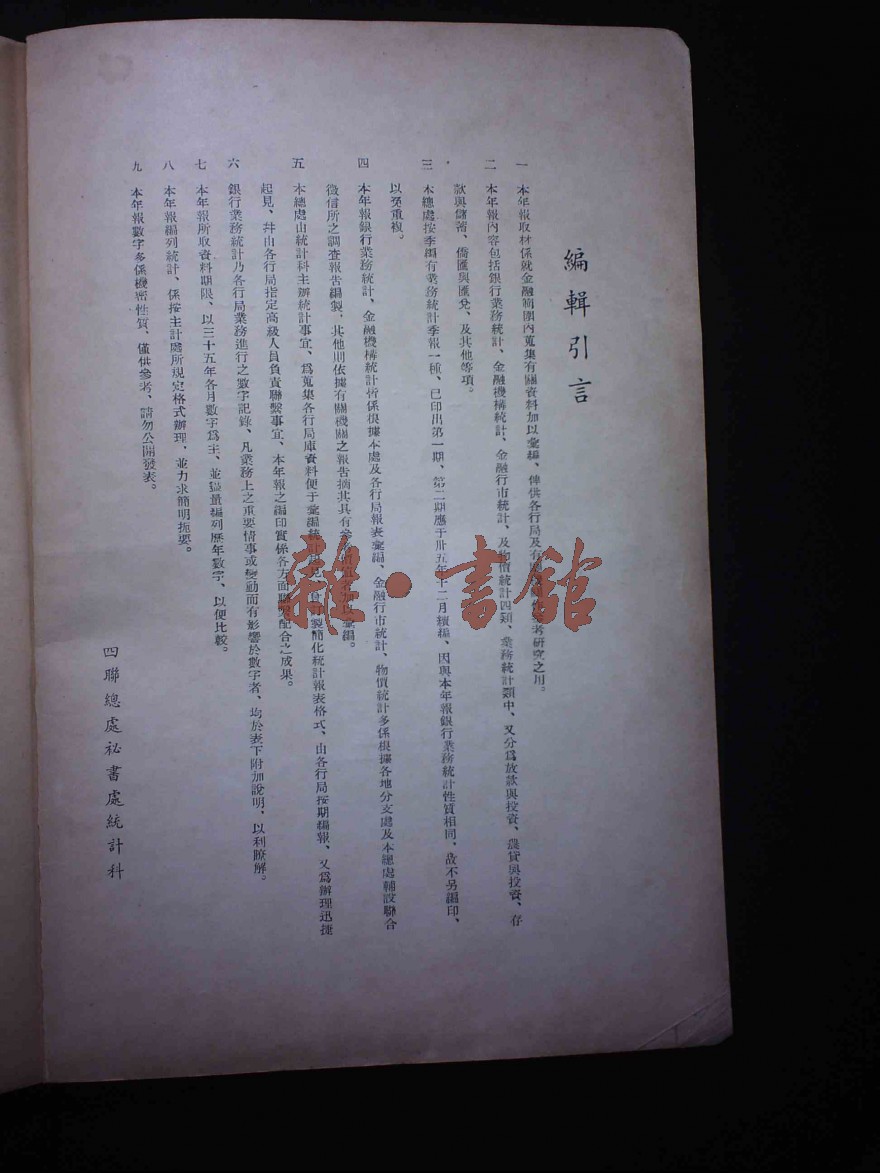 編輯引言
一 本年報取材係就金融範圍內蒐集有關資料加以彙編、俾供各行局及有 考研究之用。
二 本年報內容包括銀行業務統計、金融機構統計、金融行市統計、及物價統計四類、業務統計類中、又分爲放款與投資、農貸與投資、存
款與儲蓄、僑匯與匯兌、及其他等項。
三 本總處按季編有業務統計季報一種、已印出第一期、第二期應于卅五年十二月續編、因與本年報銀行業務統計性質相同、故不另編印、
以免重複。
四 本年報銀行業務統計、金融機構統計術係根據本處及各行局報表彙編、金融行市統計、物價統計多係根據各地分支處及本總處輔設聯合
徵信所之調查報告編製、其他則依據有關機關之報告摘其具有參 編。
五 本總處由統計科主辦統計事宜、爲蒐集各行局庫資料便于彙編統計 製簡化統計報表格式、由各行局按期編報、又爲辦理迅捷
起見、幷由各行局指定高級人員負責聯繫事宜、本年報之編印實係各方面 配合之成果。
六 銀行業務統計乃各行局業務進行之數字記錄、凡業務上之重要情事或變動而有影響於數字者、均於表下附加說明、以利瞭解。
七 本年報所取資料期限、以三十五年各月數字爲主、並儘量編列歷年數字、以便比較。
八 本年報編列統計、係按主計處所規定格式辦理、並力求簡明扼要。
九 本年報數字多係機密性質、僅供參考、請勿公開發表。
四聯總處祕書處統計科
雜·書館